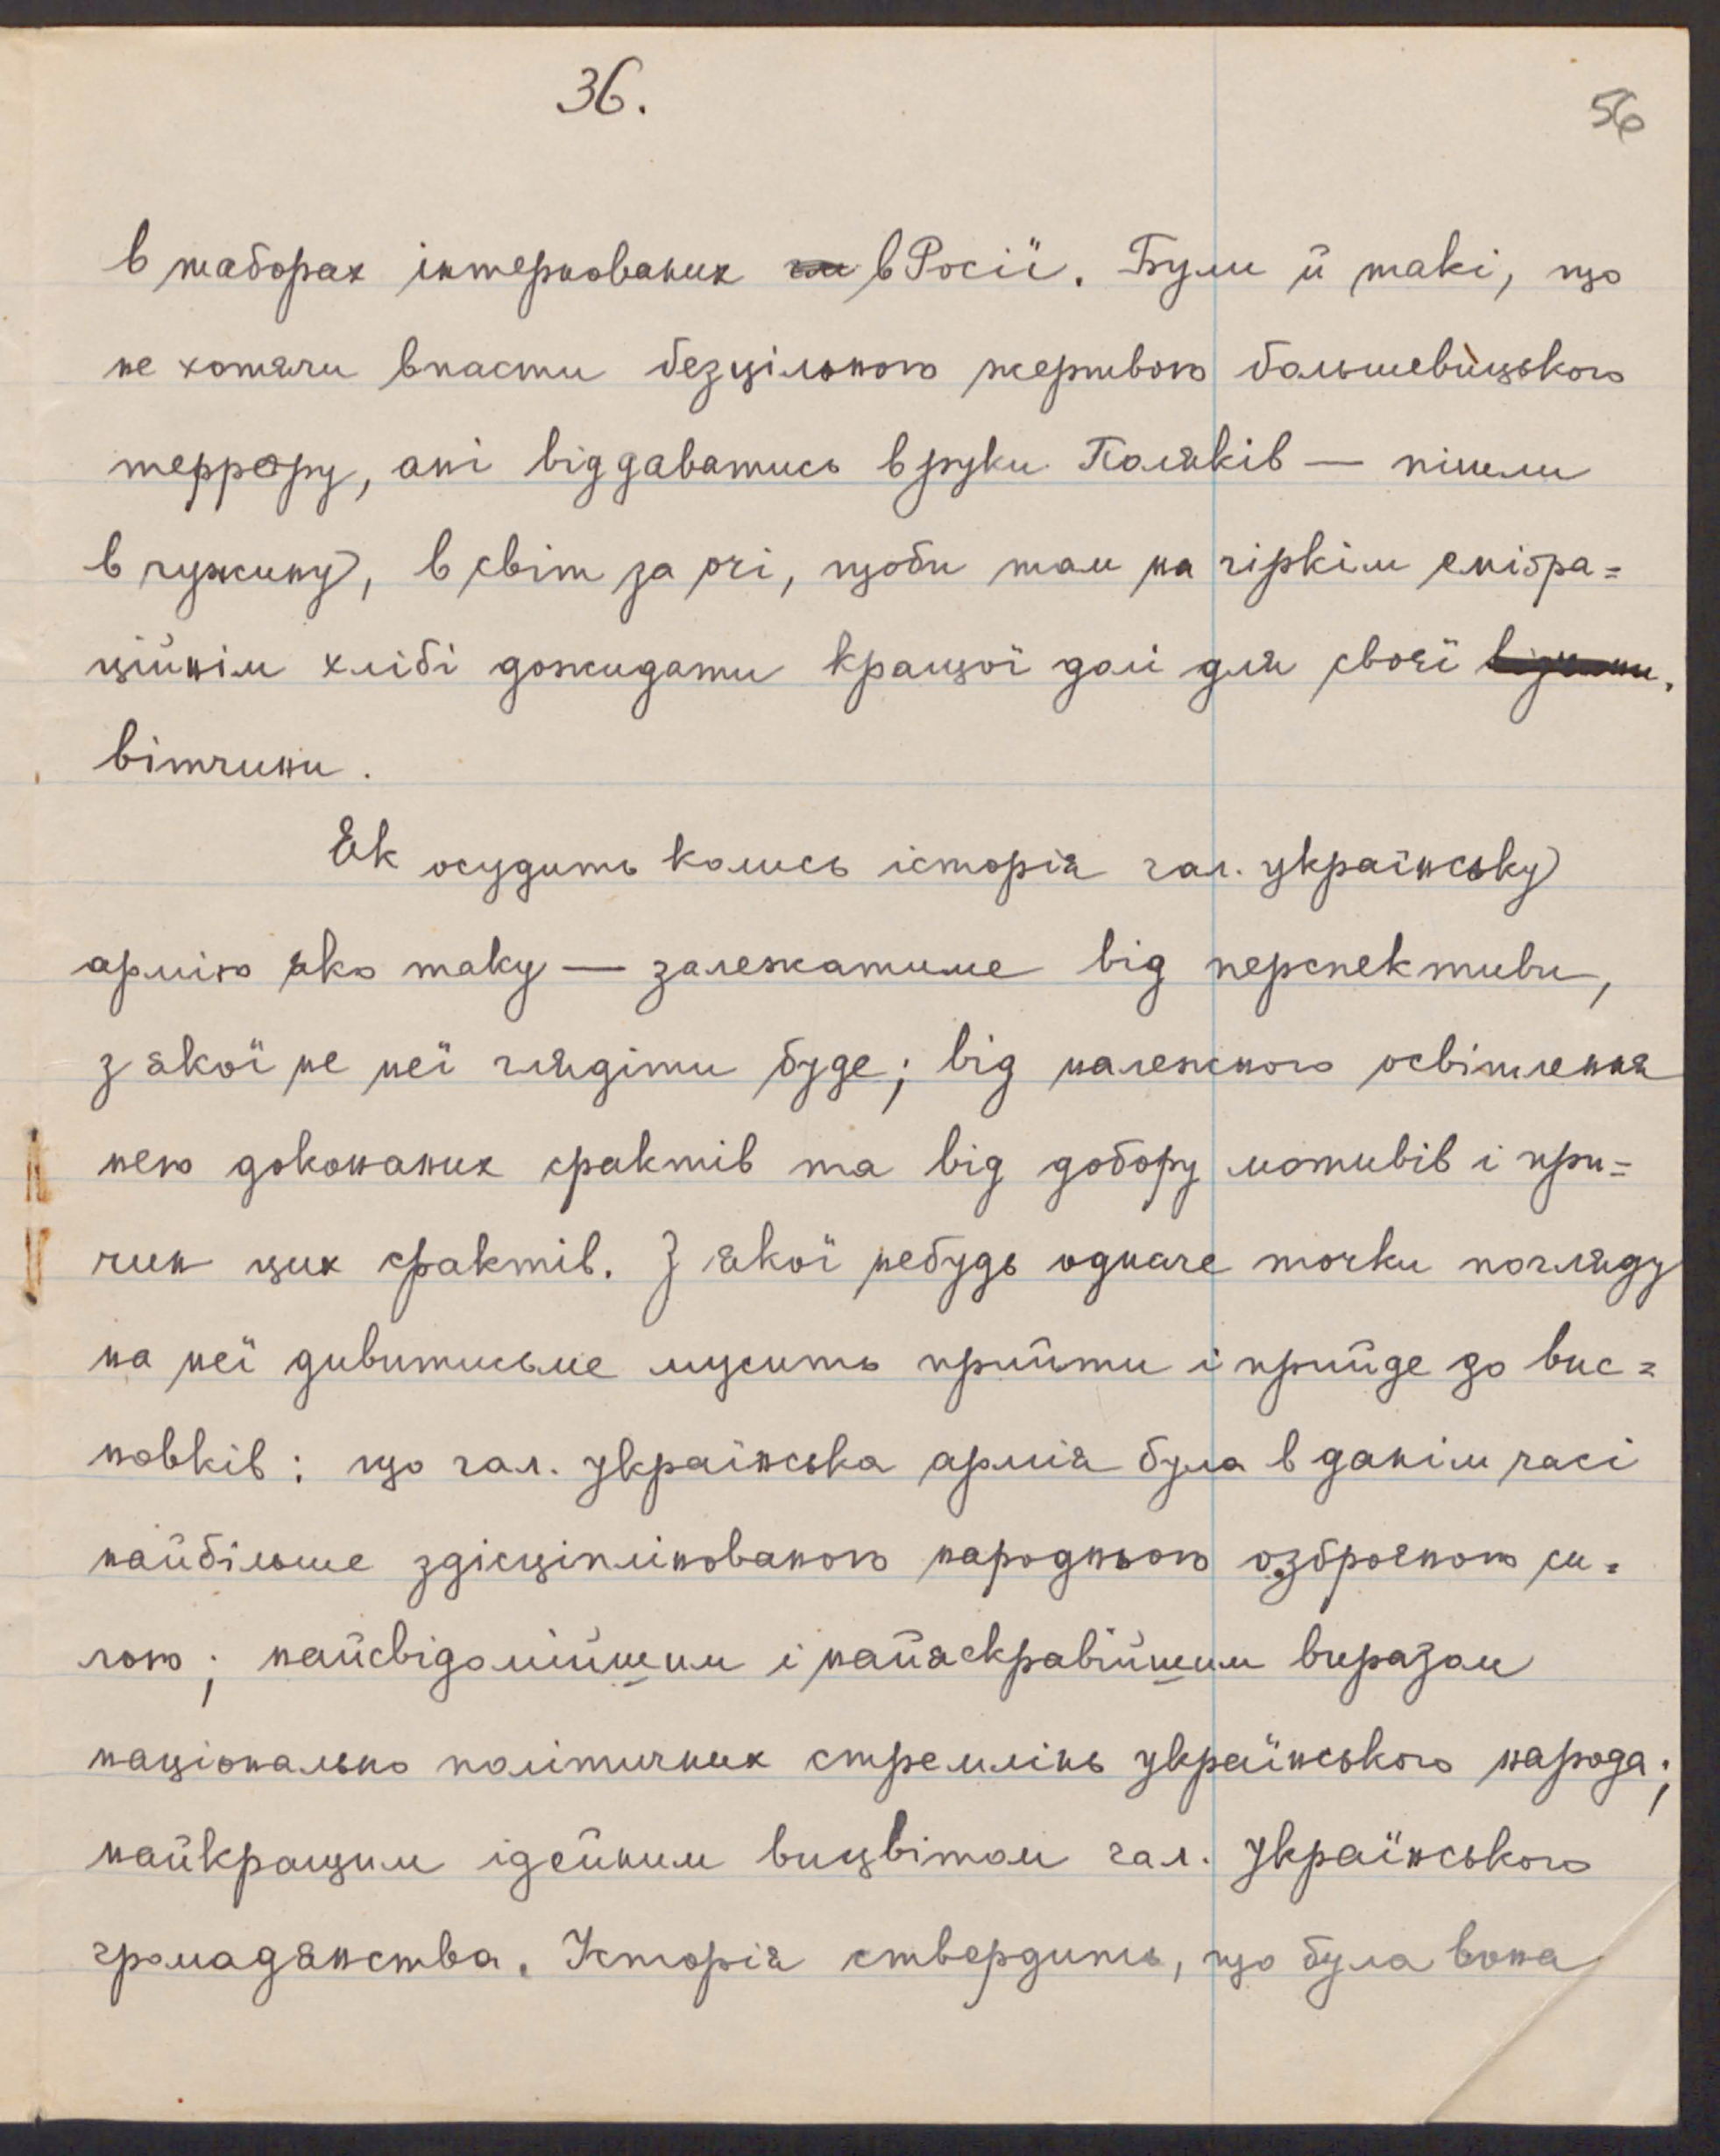 36.
56
в таборах інтернованих в Росії. Були й такі, що
не хотячи впасти безцільною жертвою большевицького
террору, ані віддаватись в руки Поляків — пішли
в чужину, в світ за очі, щоби там на гіркім еміґра=
ційнім хлібі дожидати кращої долі для своєї
вітчини.
Як осудить колись історія гал. українську
армію яко таку — залежатиме від перспективи,
з якої не неї глядіти буде; від належного освітлення
нею доконаних фактів та від добору мотивів і при=
чин цих фактів. З якої небудь одначе точки погляду
на неї дивитисьме мусить прийти і прийде до вис=
новків: що гал. українська армія була в данім часі
найбільше здісціплінованою народньою озброєною си=
лою; найсвідомійшим і найяскравійшим виразом
національно політичних стремлінь українського народа;
найкращим ідейним вицвітом гал. українського
громадянства. Історія ствердить, що була вона